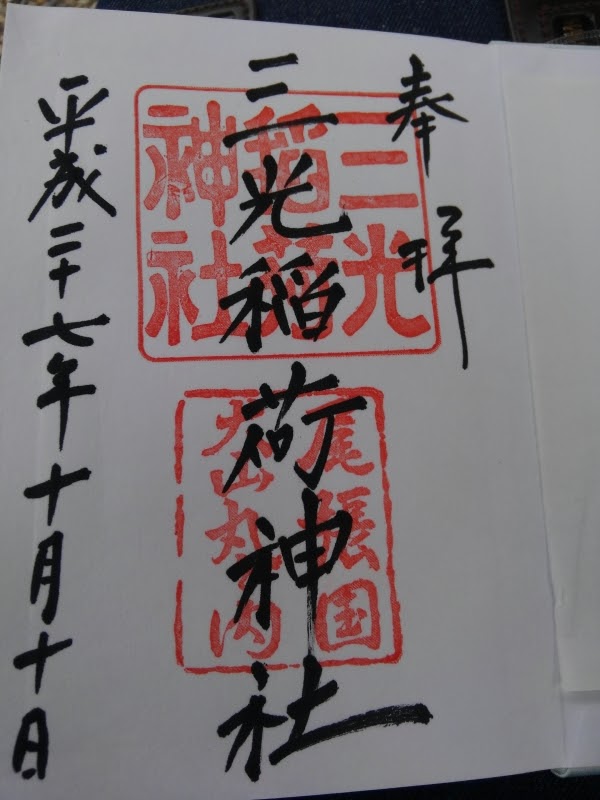 奉拝
三光稲荷神社
三光
稲荷
神社
尾張国
犬山丸の内
平成二十七年十月十日